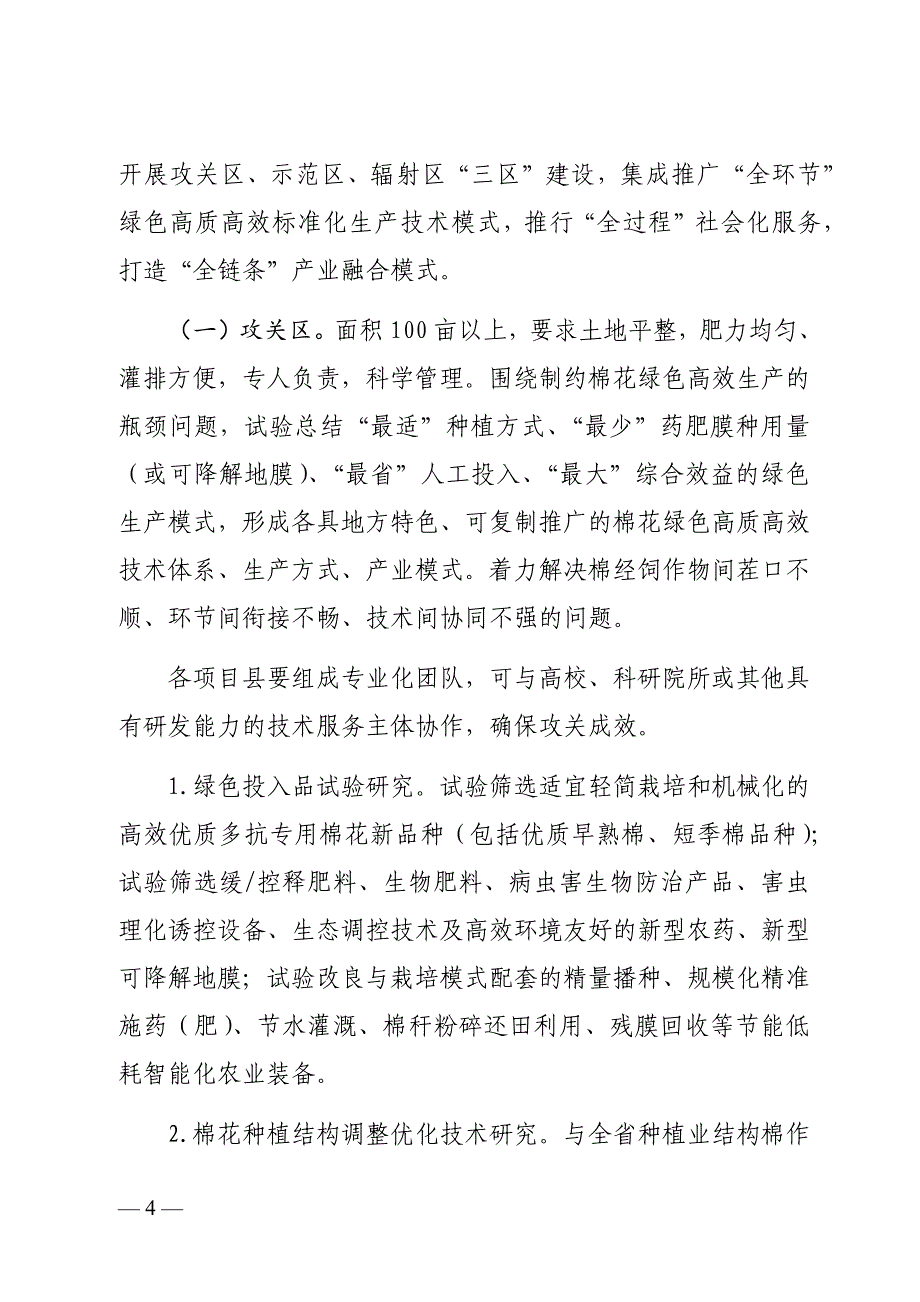 开展攻关区、示范区、辐射区“三区”建设，集成推广“全环节”
绿色高质高效标准化生产技术模式，推行“全过程”社会化服务，
打造“全链条”产业融合模式。
（一）攻关区。面积 100 亩以上，要求土地平整，肥力均匀、
灌排方便，专人负责，科学管理。围绕制约棉花绿色高效生产的
瓶颈问题，试验总结“最适”种植方式、“最少”药肥膜种用量
（或可降解地膜）、“最省”人工投入、“最大”综合效益的绿色
生产模式，形成各具地方特色、可复制推广的棉花绿色高质高效
技术体系、生产方式、产业模式。着力解决棉经饲作物间茬口不
顺、环节间衔接不畅、技术间协同不强的问题。
各项目县要组成专业化团队，可与高校、科研院所或其他具
有研发能力的技术服务主体协作，确保攻关成效。
1.绿色投入品试验研究。试验筛选适宜轻简栽培和机械化的
高效优质多抗专用棉花新品种（包括优质早熟棉、短季棉品种）；
试验筛选缓/控释肥料、生物肥料、病虫害生物防治产品、害虫
理化诱控设备、生态调控技术及高效环境友好的新型农药、新型
可降解地膜；试验改良与栽培模式配套的精量播种、规模化精准
施药（肥）、节水灌溉、棉秆粉碎还田利用、残膜回收等节能低
耗智能化农业装备。
2.棉花种植结构调整优化技术研究。与全省种植业结构棉作
— 4 —